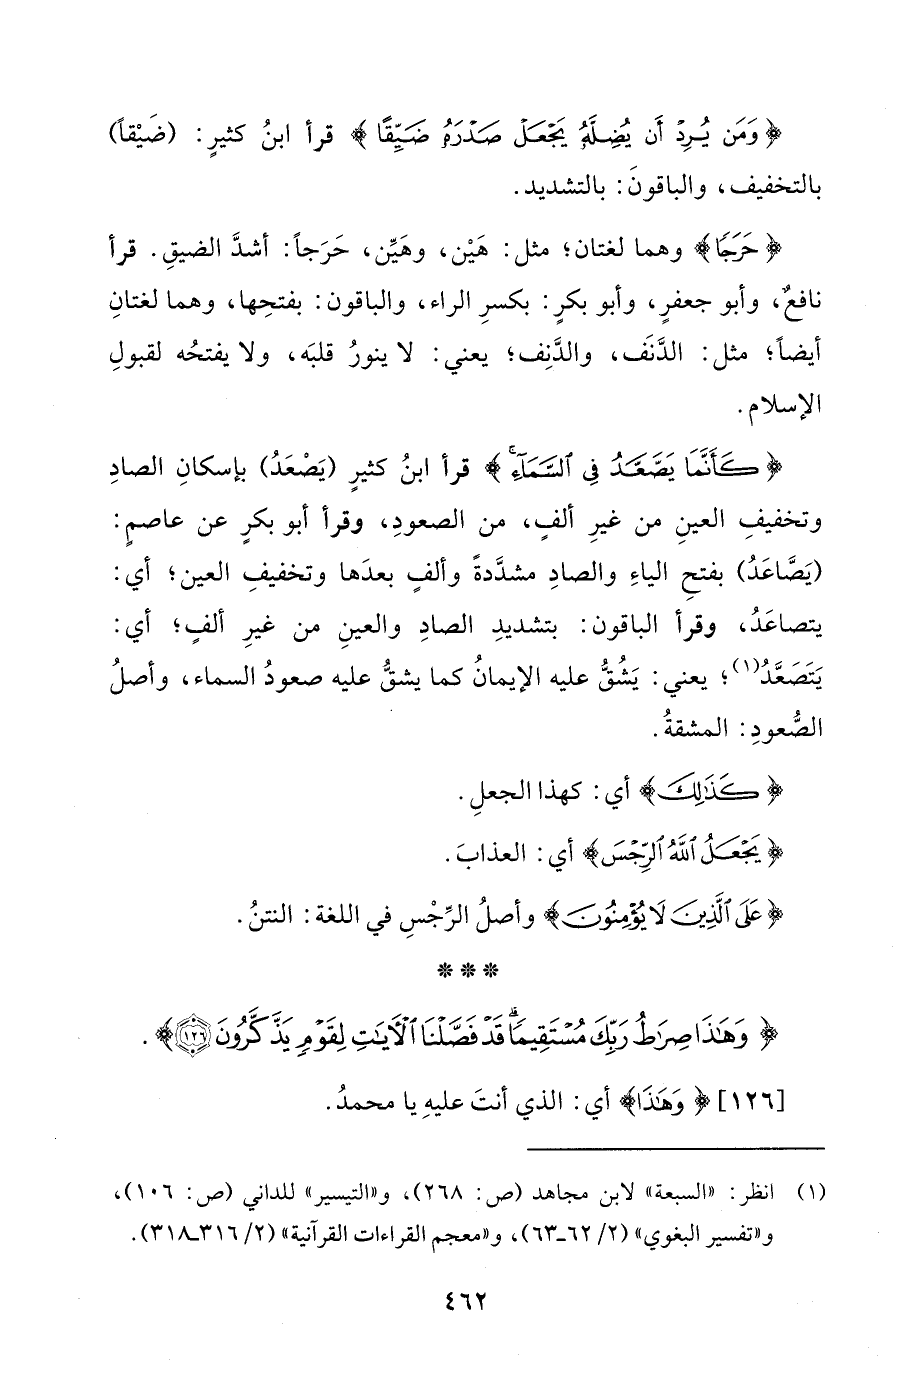 ﴿وَمَن يُرِدْ أَن يُضِلَّهُ يَجْعَلْ صَدْرَهُ ضَيِّقًا﴾ قرأ ابنُ كثيرٍ: (ضَيْقاً)
بالتخفيف، والباقونَ: بالتشديد.
﴿حَرَجًا﴾ وهما لغتان؛ مثل: هَيْن، وهَيِّن، حَرَجاً: أشدَّ الضيقِ. قرأ
نافعٌ، وأبو جعفرٍ، وأبو بكرٍ: بكسرِ الراء، والباقون: بفتحِها، وهما لغتانِ
أيضاً؛ مثل: الدَّنَف، والدَّنِف؛ يعني: لا ينورُ قلبَه، ولا يفتحُه لقبولِ
الإسلام.
﴿كَأَنَّمَا يَصَّعَّدُ فِي ٱلسَّمَآءِ﴾ قرأ ابنُ كثيرٍ (يَصْعَدُ) بإسكانِ الصادِ
وتخفيفِ العينِ من غيرِ ألفٍ، من الصعودِ، وقرأ أبو بكرٍ عن عاصمٍ:
(يَصَّاعَدُ) بفتحِ الياءِ والصادِ مشدَّدةً وألفٍ بعدَها وتخفيفِ العين؛ أي:
يتصاعَدُ، وقرأ الباقون: بتشديدِ الصادِ والعينِ من غيرِ ألفٍ؛ أي:
يَتَصَعَّدُ(١)؛ يعني: يَشُقُّ عليه الإيمانُ كما يشقُّ عليه صعودُ السماء، وأصلُ
الصُّعودِ: المشقةُ.
﴿كَذَٰلِكَ﴾ أي: كهذا الجعلِ.
﴿يَجْعَلُ ٱللَّهُ ٱلرِّجْسَ﴾ أي: العذابَ.
﴿عَلَى ٱلَّذِينَ لَا يُؤْمِنُونَ﴾ وأصلُ الرِّجْسِ في اللغة: النتنُ.
* * *
﴿وَهَٰذَا صِرَٰطُ رَبِّكَ مُسْتَقِيمًا ۗ قَدْ فَصَّلْنَا ٱلْآيَٰتِ لِقَوْمٍ يَذَّكَّرُونَ ١٢٦﴾.
[١٢٦] ﴿وَهَٰذَا﴾ أي: الذي أنتَ عليهِ يا محمدُ.
(١) انظر: «السبعة» لابن مجاهد (ص: ٢٦٨)، و«التيسير» للداني (ص: ١٠٦)،
و«تفسير البغوي» (٢/ ٦٢-٦٣)، و«معجم القراءات القرآنية» (٢/ ٣١٦-٣١٨).
٤٦٢